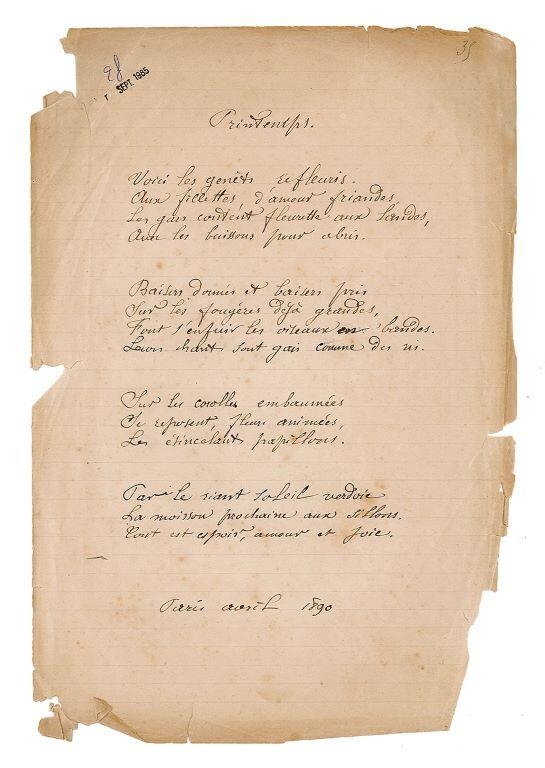 35
SEPT. 1985
Printemps.
Voici les genêts refleuris.
Aux fillettes, d'amour friandes,
Les gars content fleurette aux landes,
Avec les buissons pour abris.
Baisers donnés et baisers pris
Sur les fougères déjà grandes,
Font s'enfuir les oiseaux en bandes.
Leurs chants sont gais comme des ris.
Sur les corolles embaumées
Se reposent, fleurs animées,
Les étincelant papillons.
Par le riant soleil verdoie
La moisson prochaine aux sillons.
Tout est espoir, amour et joie.
Paris avril 1890